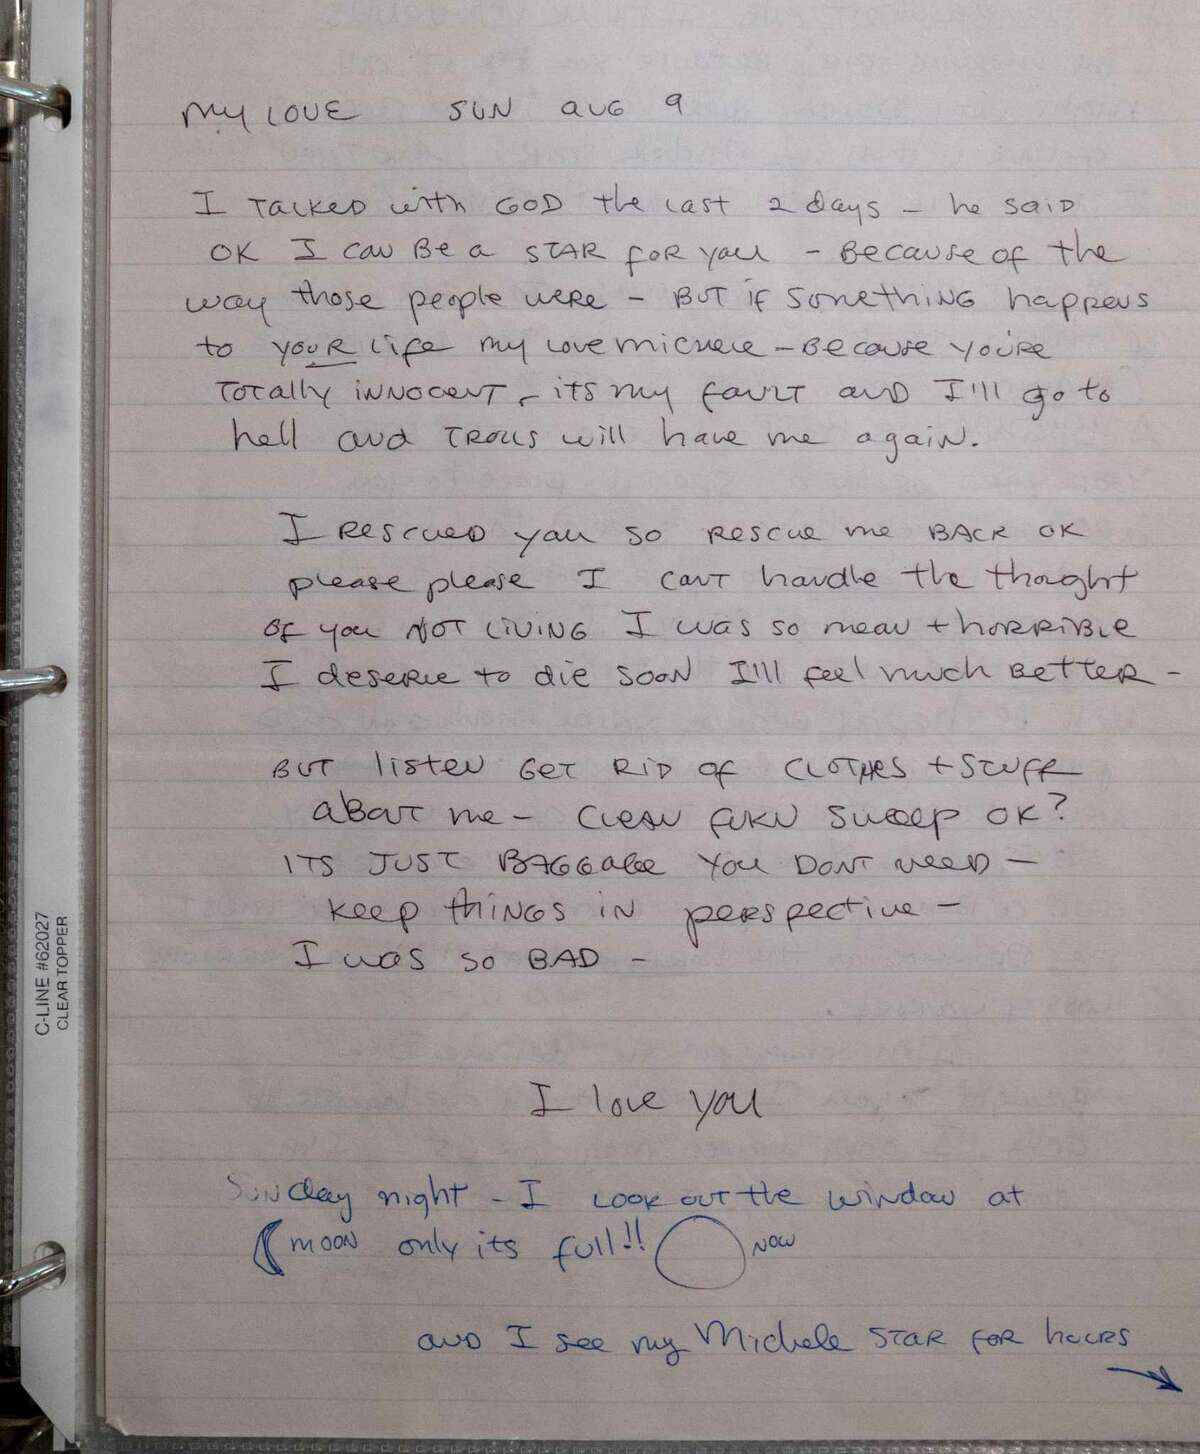 my LOVE SUN AUG 9
I TALKED with GOD the last 2 days - he said
OK I can Be a STAR for you - Because of the
way those people were - BUT if something happens
to YOUR life my love michele - Because you're
Totally innocent - its my fault and I'll go to
hell and TROLLS will have me again.
I RESCUED you so RESCUE me BACK OK
please please I cant handle the thought
of you NOT LIVING I was so mean + horrible
I deserve to die soon I'll feel much Better -
BUT listen GET RID of CLOTHES + STUFF
about me - Clean fukn sweep OK?
ITS JUST BAGGAGE YOU DONT NEED -
Keep things in perspective -
I was so BAD -
I love you
Sunday night - I LOOK out the window at
moon only its full!! NOW
and I see my Michele STAR FOR hours
C-LINE #62027
CLEAR TOPPER